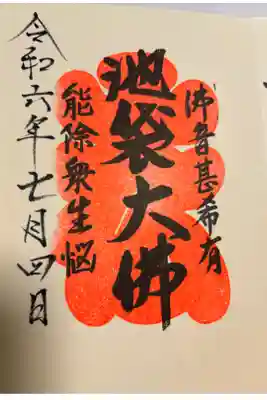 佛音甚希有
池袋大佛
能除衆生悩
令和六年七月四日